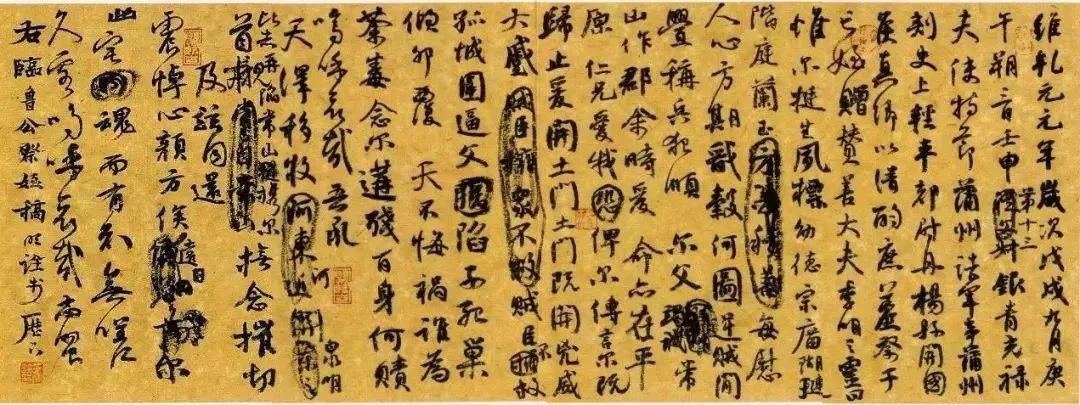 維乾元元年歲次戊戌九月庚
午朔三日壬申第十三銀青光祿
夫使持節蒲州諸軍事蒲州
刺史上輕車都尉丹楊縣開國
侯真卿以清酌庶羞祭于
亡姪贈贊善大夫季明之靈曰
惟爾挺生夙標幼德宗廟瑚璉
階庭蘭玉方憑積善每慰
人心方期戩穀何圖逆賊閒
釁稱兵犯順爾父常
山作郡余時受命亦在平
原仁兄愛我恐俾爾傳言爾既
歸止爰開土門土門既開兇威
大蹙賊臣擁眾不救賊臣不救
孤城圍逼父陷子死巢
傾卵覆天不悔禍誰為
荼毒念爾遘殘百身何贖
嗚呼哀哉吾承
天澤移牧河東近河關泉明
比者再陷常山攜爾
首櫬撫念摧切
及茲同還
震悼心顏方俟遠日爾
幽宅魂而有知無嗟
久客嗚呼哀哉尚饗
右臨魯公祭姪稿書